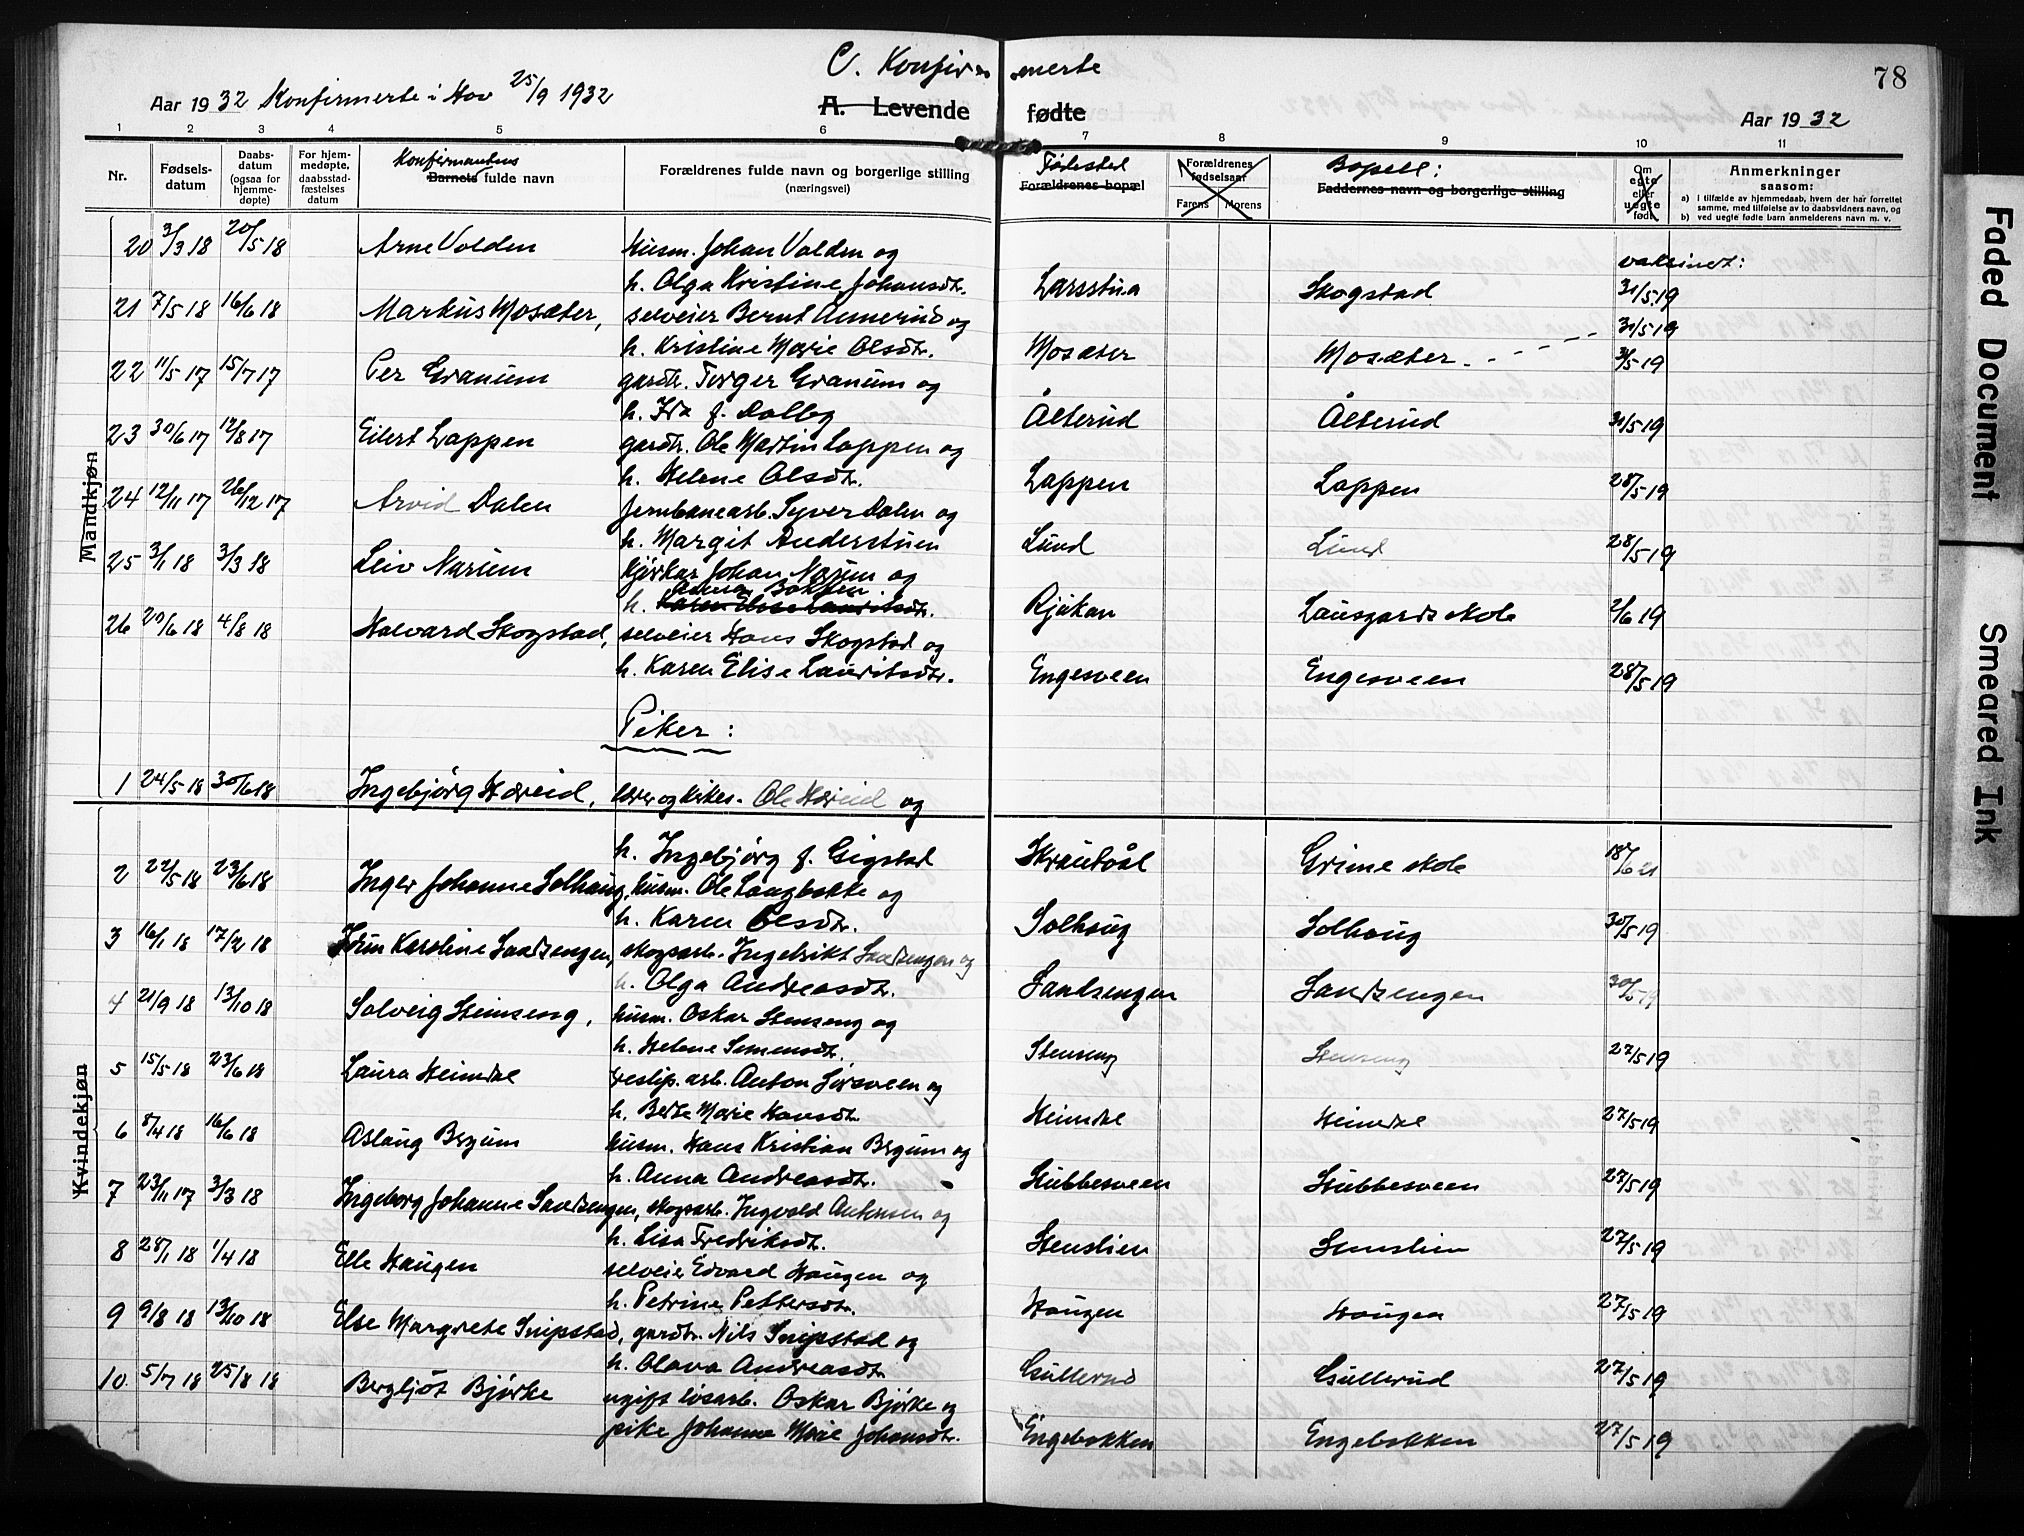 C. Konfirmerte
78
Aar 1932 Konfirmerte i Hov 25/9 1932
A. Levende fødte
Aar 1932
1 2 3 4 5 6 7 8 9 10 11
Nr.
Fødsels-
datum
Daabs-
datum
(ogsaa for
hjemme-
døpte)
For hjem-
medøpte,
daabsstad-
fæstelses
datum
Konfirmantens
Barnets fulde navn
Forældrenes fulde navn og borgerlige stilling
(næringsvei)
Fødested
Forældrenes bopæl
Forældrenes
fødselsaar
Farens Morens
Bopell:
Faddernes navn og borgerlige stilling
Om
egte
eller
uegte
født
Anmerkninger
saasom:
a) i tilfælde av hjemmedaab, hvem der har forrettet
samme, med tilføielse av to daabsvidners navn, og
b) ved uegte fødte barn anmelderens navn m. v.
Mandkjøn
20 3/3 18 20/5 18 Arne Volden Husm. Johan Volden og
vaksinert:
h. Olga Kristine Johansdtr. Larsstua Skogstad 31/5 19
21 7/5 18 16/6 18 Markus Mosæter, selveier Bernt Annerud og 31/5 19
h. Kristine Marie Olsdtr. Mosæter Mosæter 31/5 19
22 11/5 17 15/7 17 Per Granum gardbr. Torger Granum og
h. Ida f. Dalby Ålterud Ålterud 31/5 19
23 30/6 17 12/8 17 Eilert Lappen gardbr. Ole Martin Lappen og
h. Helene Olsdtr. Lappen Lappen 28/5 19
24 12/11 17 26/12 17 Arvid Dalen Jernbanearb. Syver Dalen og
h. Margit Anderstuen Lund Lund 28/5 19
25 3/1 18 3/3 18 Leiv Narum Kjørkar Johan Narum og
Anna Bakken
h. Karen Elise Lauritsdtr. Rjukan Lausgards skole 2/6 19
26 20/6 18 4/8 18 Halvard Skogstad, selveier Hans Skogstad og
h. Karen Elise Lauritsdtr. Engesveen Engesveen 28/5 19
Piker:
1 24/5 18 30/6 18 Ingebjørg Hæreid, lærer og kirkes. Ole Hæreid og
Kvindekjøn
h. Ingebjørg f. Gigstad Skrautvål Grime skole 18/6 21
2 22/5 18 23/6 18 Inger Johanne Solhaug, husm. Ole Langbakke og
h. Karen Olsdtr. Solhaug Solhaug 30/5 19
3 16/1 18 17/2 18 Jorun Karoline Sandsengen, skogsarb. Ingebrikt Sandsengen og
h. Olga Andreasdtr. Sandsengen Sandsengen 30/5 19
4 21/9 18 13/10 18 Solveig Stenseng, husm. Oskar Stenseng og
h. Helene Simensdtr. Stenseng Stenseng 27/5 19
5 15/5 18 23/6 18 Laura Heimdal treslip. arb. Anton Sørsveen og
h. Berte Marie Hansdtr. Heimdal Heimdal 27/5 19
6 8/4 18 16/6 18 Aslaug Bergum husm. Hans Kristian Bergum og
h. Anna Andreasdtr. Stubbesveen Stubbesveen 27/5 19
7 23/11 17 3/3 18 Ingeborg Johanne Sandsengen, skogsarb. Ingvald Antonsen og
h. Lisa Fredriksdtr. Stenslien Stenslien 27/5 19
8 28/1 18 1/4 18 Elle Haugen selveier Edvard Haugen og
h. Petrine Pettersdtr. Haugen Haugen 27/5 19
9 9/8 18 13/10 18 Else Margrete Snipstad, gardbr. Nils Snipstad og
h. Olava Andreasdtr. Gullerud Gullerud 27/5 19
10 5/7 18 25/8 18 Bergljót Bjørke ugift løsarb. Oskar Bjørke og
pike Johanne Marie Johansdtr. Engebakken Engebakken 27/5 19
Faded Document
Smeared Ink